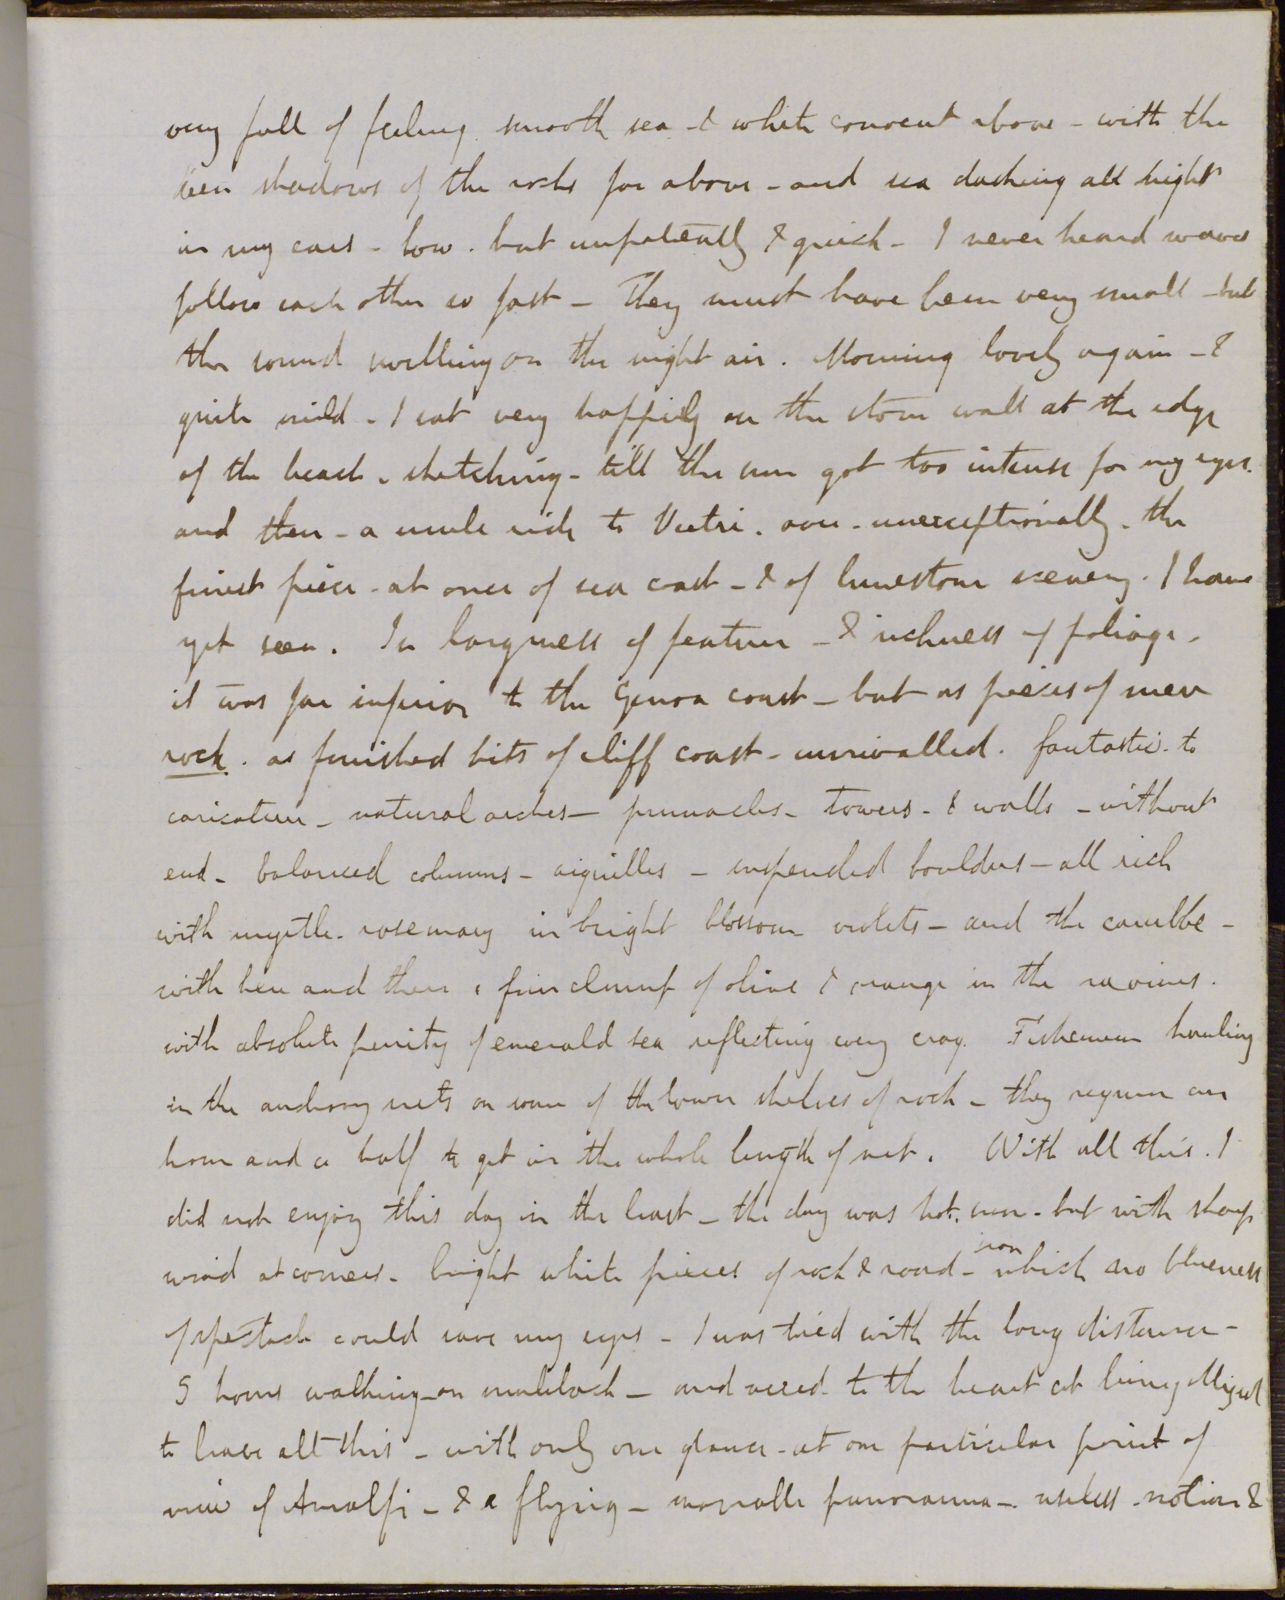 very full of feeling. smooth sea - & white convent above - with the
keen shadows of the rocks far above - and sea dashing all night
in my ears - low. but impatiently & quick - I never heard waves
follow each other so fast - They must have been very small - but
the sound swelling on the night air. Morning lovely again - &
quite mild - I sat very happily on the stone wall at the edge
of the beach. sketching - till the sun got too intense for my eyes.
and then - a mule ride to Vietri. over - unexceptionally - the
finest piece - at once of sea coast - & of limestone scenery. I have
yet seen. In largeness of feature - & richness of foliage.
it was far inferior to the Genoa coast - but as pieces of mere
rock. as finished bits of cliff coast - unrivalled. fantastic to
caricature - natural arches - pinnacles - towers - & walls - without
end - balanced columns - aiguilles - suspended boulders - all rich
with myrtle - rosemary in bright blossom violets - and the caroubbe -
with here and there a fine clump of olive & orange in the ravines.
with absolute purity of emerald sea reflecting every crag. Fishermen hauling
in the anchovy nets on some of the lower shelves of rock - they require an
hour and a half to get in the whole length of net. With all this. I
did not enjoy this day in the least - the day was hot. sun - but with sharp
wind at corners - bright white pieces of rock & road - from which no blueness
of spectacle could save my eyes - I was tired with the long distance -
5 hours walking on muleback - and vexed to the heart at being obliged
to leave all this - with only one glance - at one particular point of
view of Amalfi - & a flying - movable panorama - useless - notion &